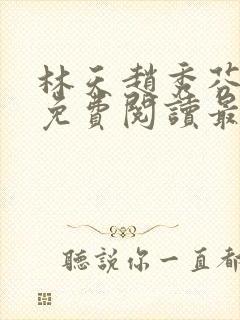 林天趙秀芬
免費閱讀最
聽說你一直都